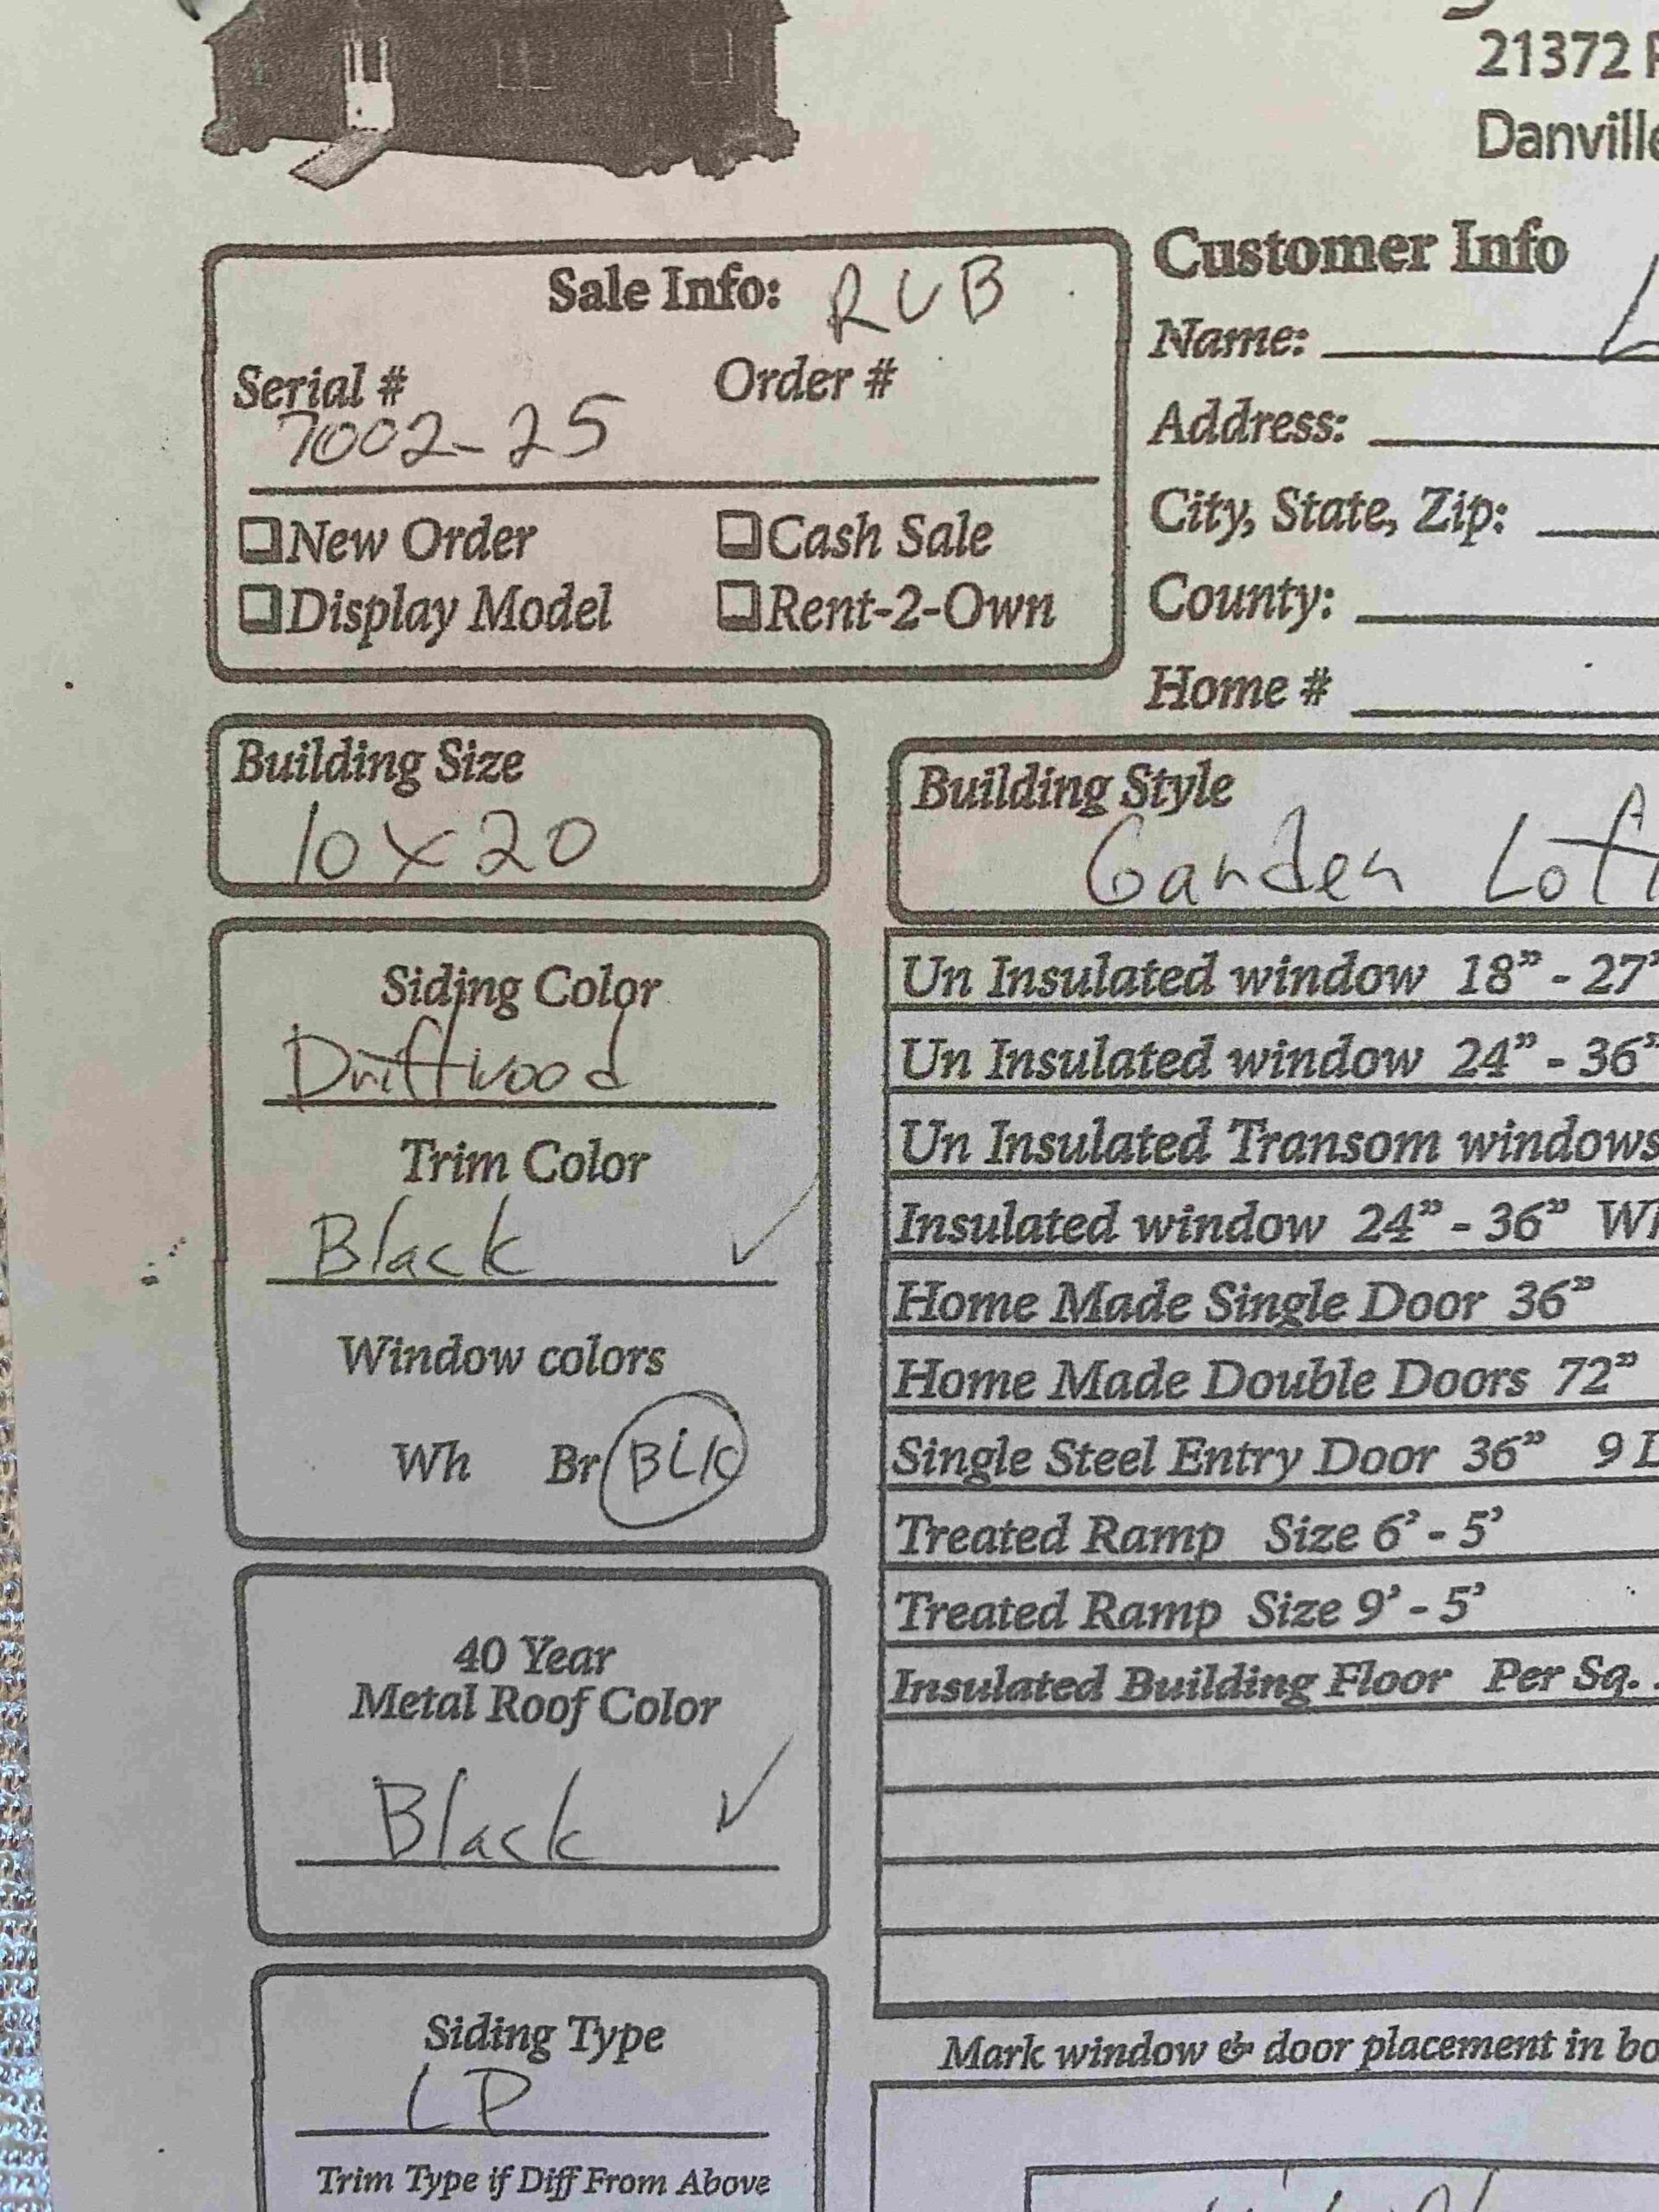 21372
Danville
Sale Info: RUB
Serial # Order #
7002-25
❑New Order ❑Cash Sale
❑Display Model ❑Rent-2-Own
Customer Info
Name:
Address:
City, State, Zip:
County:
Home #
Building Size
10 x 20
Building Style
Garden Loft
Siding Color
Driftwood
Trim Color
Black ✓
Window colors
Wh Br BLK
40 Year
Metal Roof Color
Black ✓
Siding Type
LP
Trim Type if Diff From Above
Un Insulated window 18” - 27”
Un Insulated window 24” - 36”
Un Insulated Transom windows
Insulated window 24” - 36”
Home Made Single Door 36”
Home Made Double Doors 72”
Single Steel Entry Door 36” 9
Treated Ramp Size 6’ - 5’
Treated Ramp Size 9’ - 5’
Insulated Building Floor Per Sq.
Mark window & door placement in